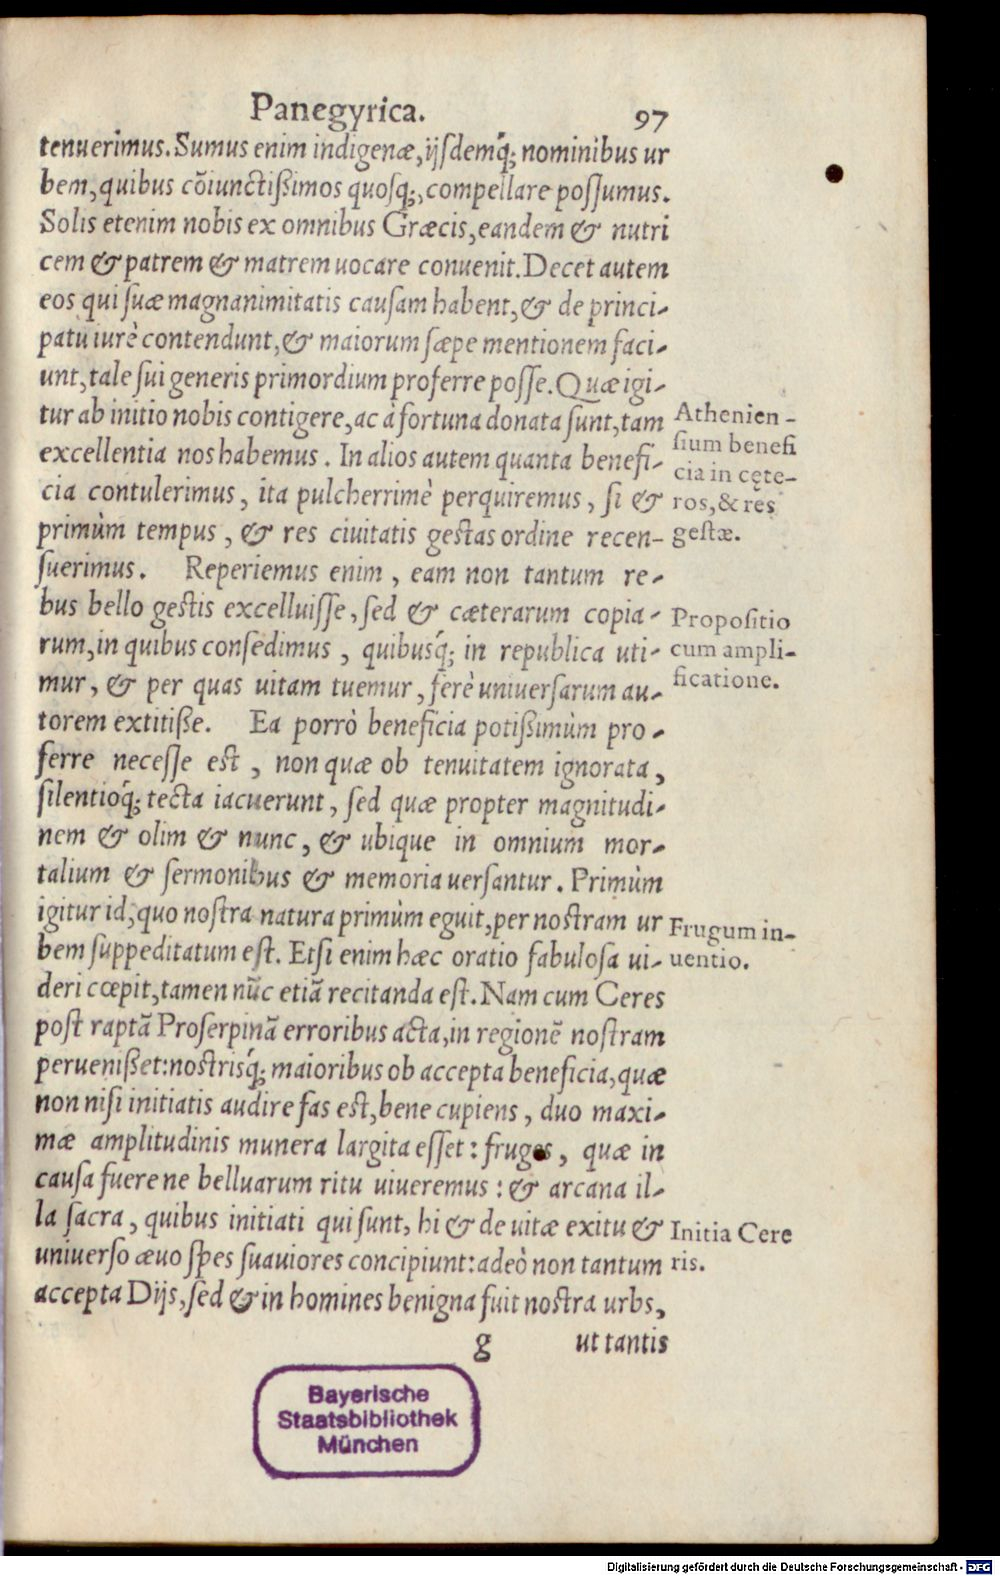 Panegyrica. 97
tenuerimus. Sumus enim indigenæ, ijsdemq́; nominibus ur
bem, quibus cõiunctißimos quosq;, compellare possumus.
Solis etenim nobis ex omnibus Græcis, eandem & nutri
cem & patrem & matrem uocare conuenit. Decet autem
eos qui suæ magnanimitatis causam habent, & de princi-
patu iurè contendunt, & maiorum sæpe mentionem faci-
unt, tale sui generis primordium proferre posse. Quæ igi-
tur ab initio nobis contigere, ac à fortuna donata sunt, tam
excellentia nos habemus. In alios autem quanta benefi-
cia contulerimus, ita pulcherrimè perquiremus, si &
primùm tempus, & res ciuitatis gestas ordine recen-
suerimus. Reperiemus enim, eam non tantum re-
bus bello gestis excelluisse, sed & cæterarum copia-
rum, in quibus consedimus, quibusq́; in republica uti-
mur, & per quas uitam tuemur, ferè uniuersarum au-
torem extitiße. Ea porrò beneficia potißimùm pro-
ferre necesse est, non quæ ob tenuitatem ignorata,
silentioq́; tecta iacuerunt, sed quæ propter magnitudi-
nem & olim & nunc, & ubique in omnium mor-
talium & sermonibus & memoria uersantur. Primùm
igitur id, quo nostra natura primùm eguit, per nostram ur
bem suppeditatum est. Etsi enim hæc oratio fabulosa ui-
deri cœpit, tamen nũc etiã recitanda est. Nam cum Ceres
post raptã Proserpinã erroribus acta, in regionẽ nostram
perueniß​et: nostrisq́; maioribus ob accepta beneficia, quæ
non nisi initiatis audire fas est, bene cupiens, duo maxi-
mæ amplitudinis munera largita esset: fruges, quæ in
causa fuere ne belluarum ritu uiueremus: & arcana il-
la sacra, quibus initiati qui sunt, hi & de uitæ exitu &
uniuerso æuo spes suauiores concipiunt: adeò non tantum
accepta Dijs, sed & in homines benigna fuit nostra urbs,
g ut tantis
Athenien-
sium benefi
cia in cęte-
ros, & res
gestæ.
Propositio
cum ampli-
ficatione.
Frugum in-
uentio.
Initia Cere
ris.
Bayerische
Staatsbibliothek
München
Digitalisierung gefördert durch die Deutsche Forschungsgemeinschaft - DFG